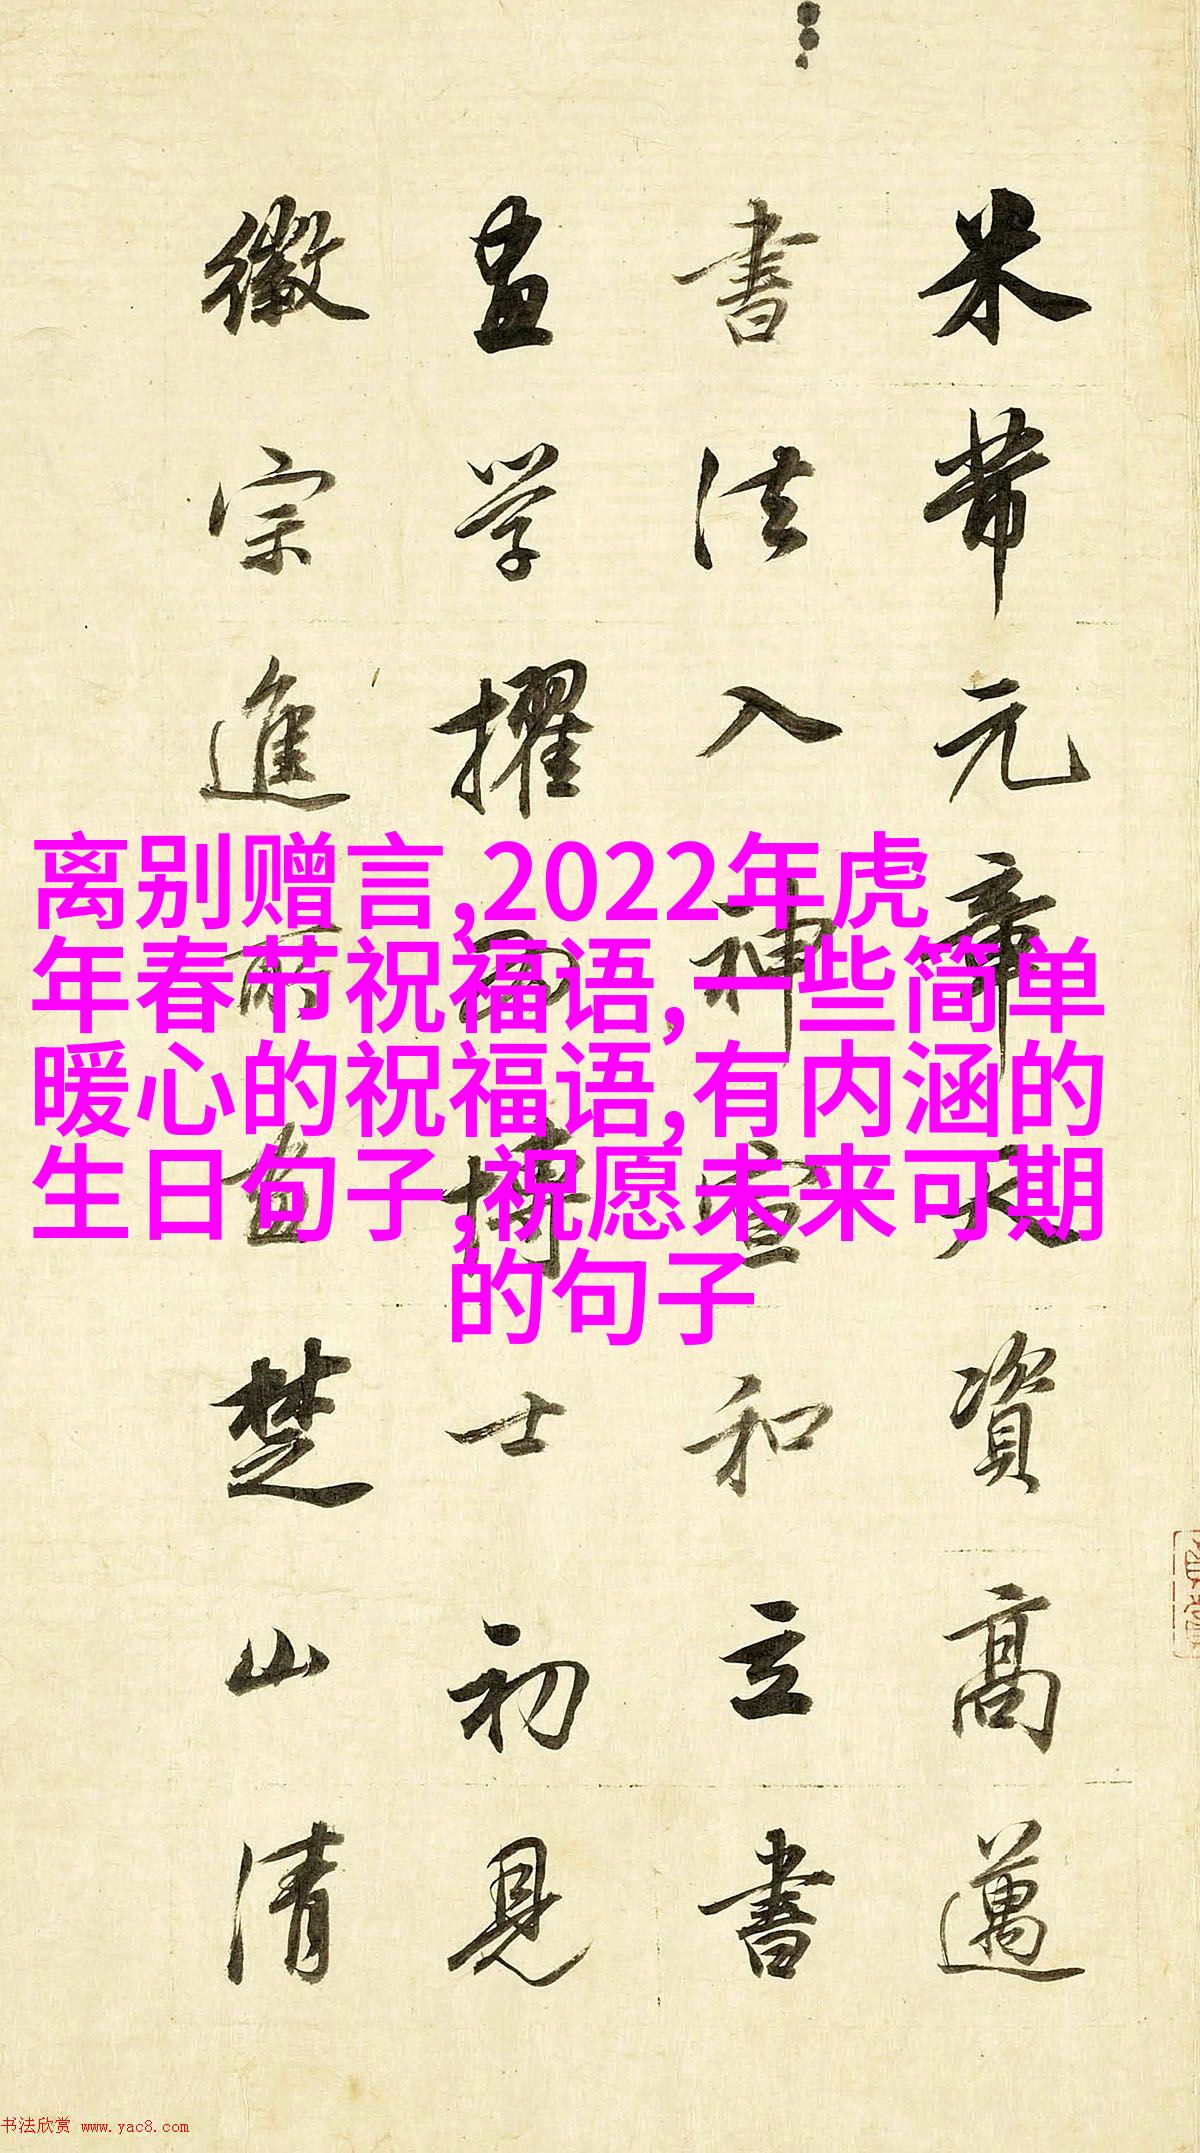 离别赠言,2022年虎
年春节祝福语,一些简单
暖心的祝福语,有内涵的
生日句子,祝愿未来可期
的句子
米芾元章天資高邁
書法入神宣和立書
畫学擢博士初見
徽宗進所畫楚山清
书法欣赏 www.yac8.com